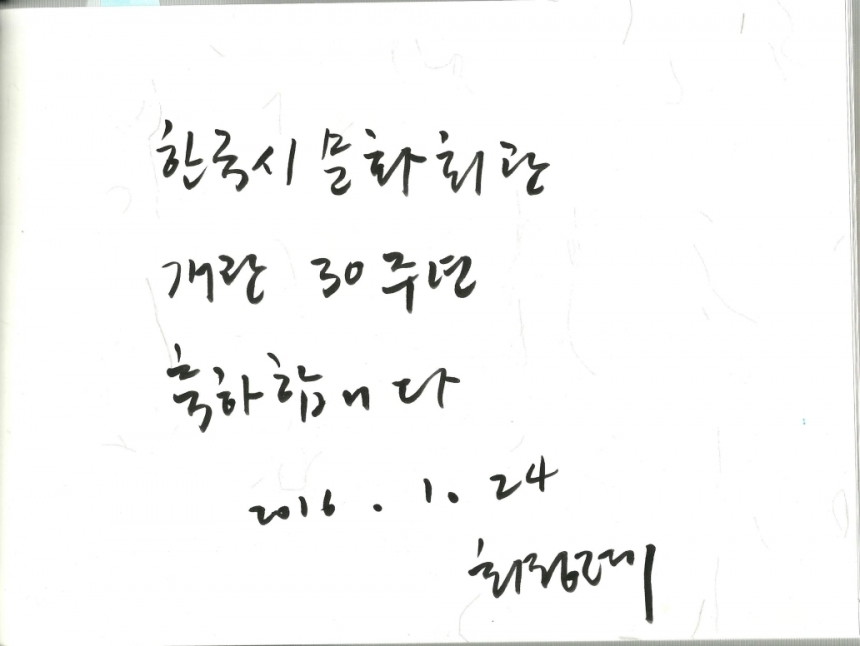 한국시 문화회관
개관 30주년
축하합니다
2016. 1. 24
최정례